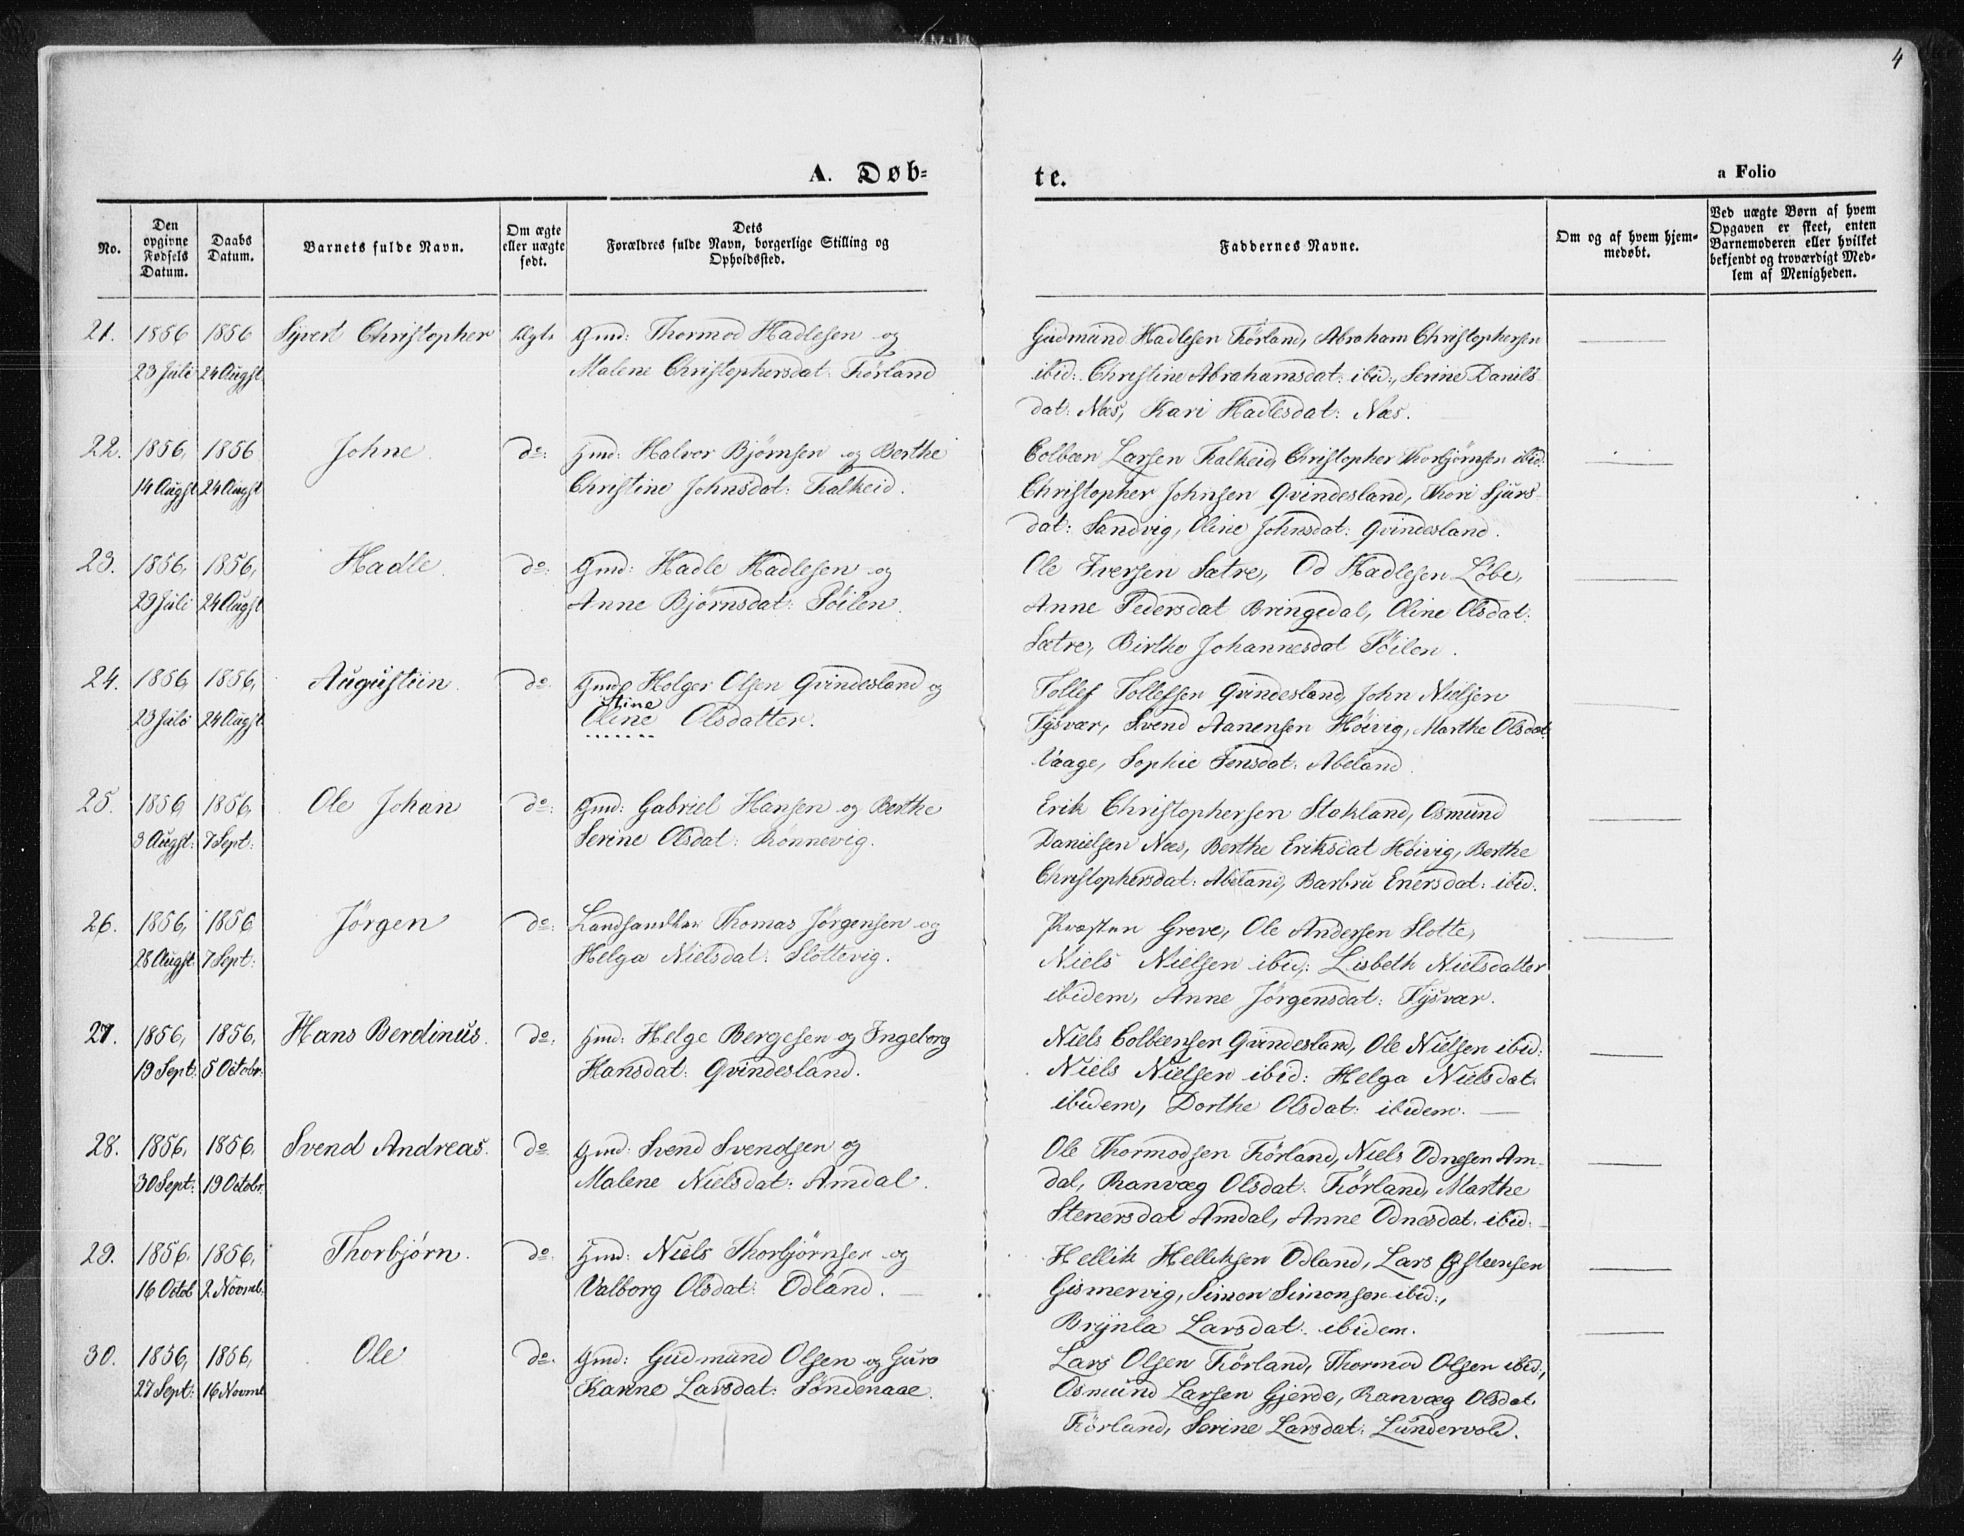 4
A. Døb-
te.
a Folio
No.
Den opgivne Fødsels Datum.
Daabs Datum.
Barnets fulde Navn.
Om ægte eller uægte født.
Dets Forældres fulde Navn, borgerlige Stilling og Opholdssted.
Faddernes Navne.
Om og af hvem hjemmedøbt.
Ved uægte Børn af hvem Opgaven er skeet, enten Barnemoderen eller hvilket bekjendt og troværdigt Medlem af Menigheden.
21. 1856 1856 Sjvert Christopher Ægte Gmd: Thormod Hadlesen og
23 Juli 24 Augst Malene Christophersdat: Førland
Gudmund Hadlesen Førland, Abraham Christophersen
ibid: Christine Abrahamsdat: ibid:, Serine Daniels-
dat: Næs, Kari Hadlesdat: Næs.
22. 1856, 1856 Johne do: Hmd: Halvor Bjørnsen og Berthe
14 Augst 24 Augst Christine Johnsdat: Falkeid.
Colbeen Larsen Falkeid, Christopher Thorbjørnsen ibid:
Christopher Johnsen Qvindesland, Thori Sjurs-
dat: Sandvig, Oline Johnsdat: Qvindesland.
23. 1856, 1856, Hadle do: Gmd: Hadle Hadlesen og
23 Juli 24 Augst Anne Bjørnsdat: Søilen.
Ole Iversen Sætre, Od Hadlesen Løbe,
Anne Pedersdat Bringedal, Oline Olsdat:
Sætre, Birthe Johannesdat Søilen.
24. 1856, 1856, Augustiin do Holger Olsen Qvindesland og
23 Juli 24 Augst Oline Olsdatter.
stine
Tollef Tollefsen Qvindesland, John Nielsen
Tysvær, Svend Aanensen Høivig, Marthe Olsdat:
Vaage, Sophie Jensdat: Abeland.
25. 1856, 1856, Ole Johan do: Gmd: Gabriel Hansen og Berthe
3 Augst: 7 Sept: Serine Olsdat: Rønnevig.
Erik Christophersen Stokland, Osmund
Danielsen Næs, Berthe Eriksdat Høivig, Berthe
Christophersdat: Abeland, Barbru Enersdat: ibid.
26. 1856, 1856 Jørgen do: Landhandler Thomas Jørgensen og
28 Augst 7 Sept: Helga Nielsdat: Slottevig.
Præsten Greve, Ole Andersen Slotte,
Niels Nielsen ibid; Lisbeth Nielsdatter
ibidem, Anne Jørgensdat: Tysvær.
27. 1856, 1856, Hans Berdinus. do: Hmd: Helge Bergesen og Ingeborg
19 Sept: 5 Octobr: Hansdat: Qvindesland.
Niels Colbeensen Qvindesland, Ole Nielsen ibid:
Niels Nielsen ibid: Helga Nielsdat:
ibidem, Dorthe Olsdat: ibidem.
28. 1856, 1856, Svend Andreas. do Gmd: Svend Svendsen og
30 Sept: 19 Octobr Malene Nielsdat: Amdal.
Ole Thormodsen Førland, Niels Odnesen Am-
dal, Ranvæg Olsdat: Førland, Marthe
Stenersdat Amdal, Anne Odnesdat. ibid:
29. 1856. 1856, Thorbjørn. do: Hmd: Niels Thorbjørnsen og
16 Octob 2 Novmb. Valborg Olsdat: Odland.
Hellik Helliksen Odland, Lars Østeensen
Gismervig, Simon Simonsen ibid:,
Brynla Larsdat: ibidem.
30. 1856, 1856, Ole do. Gmd: Gudmund Olsen og Guro
27 Sept: 16 Novmb Karine Larsdat: Søndenaae.
Lars Olsen Førland, Thormod Olsen ibid:,
Osmund Larsen Gjerde, Ranvæg Olsdat.
Førland, Serine Larsdat: Lundervold.